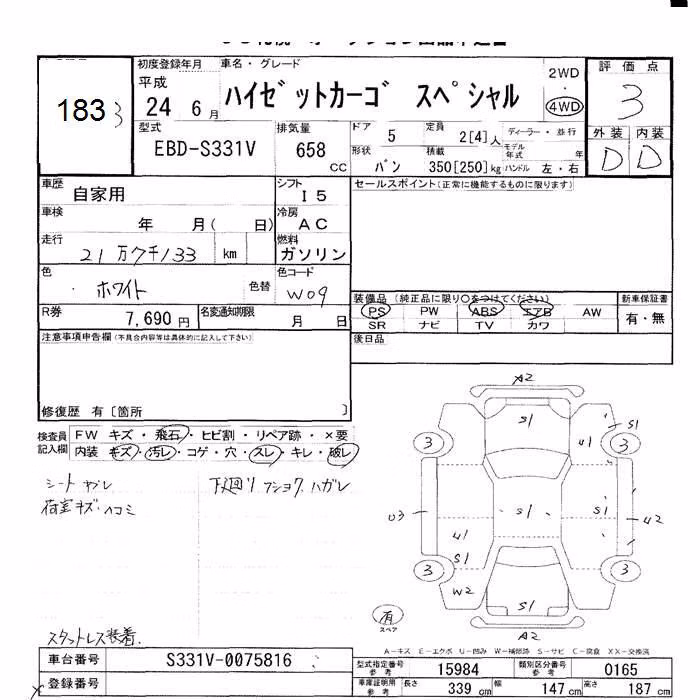 183 3
初度登録年月
平成
24 6 月
車名・グレード
ハイゼットカーゴ スペシャル
2WD
・
4WD
評価点
3
型式
EBD-S331V
排気量
658
CC
ドア
5
定員
2[4]人
ディーラー・並行
形状
バン
積載
350[250]kg
モデル年式 年
ハンドル 左・右
外装 内装
D D
車歴
自家用
シフト
I5
セールスポイント(正常に機能するものに限ります)
車検
年 月( 日)
冷房
AC
走行
21万7千133 km
燃料
ガソリン
色
ホワイト
色替
色コード
W09
R券
7,690円
名変通知期限
月 日
装備品(純正品に限り○をつけてください)
PS PW ABS エアB AW
SR ナビ TV カワ
新車保証書
有・無
注意事項申告欄(不具合内容等は具体的に記入して下さい)
後日品
修復歴 有[箇所 ]
検査員記入欄
FW キズ・飛石・ヒビ割・リペア跡・×要
内装 キズ・汚レ・コゲ・穴・スレ・キレ・破レ
シートヤブレ
荷室キズ・ヘコミ
下廻リ フショク ハガレ
スタットレス装着.
A2
S1
S1
3
3
U1
U3
S1
U1
S1
42
3
3
W2
S1
A2
有
スペア
A-キズ E-エクボ U-凹み W-補修跡 S-サビ C-腐食 XX-交換済
車台番号
S331V-0075816
登録番号
型式指定番号
参考
15984
類別区分番号
参考
0165
車庫証明用
参考
長さ
339 cm
幅
147 cm
高さ
187 cm